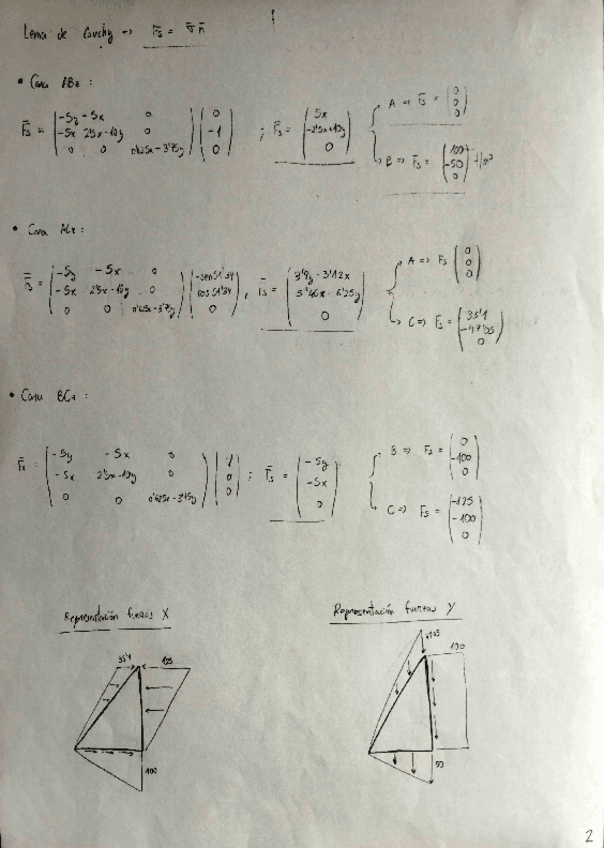 Lema de Cauchy → F̄s = σ̿ n̄
• Cara ABz :
F̄s = ( -5y -5x 0 / -5x 2'5x-10y 0 / 0 0 0'625x-3'75y ) ( 0 / -1 / 0 ) ; F̄s = ( 5x / -2'5x+10y / 0 )
A ⇒ F̄s = ( 0 / 0 / 0 )
B ⇒ F̄s = ( 100 / -50 / 0 )
• Cara ACz :
F̄s = ( -5y -5x 0 / -5x 2'5x-10y 0 / 0 0 0'625x-3'75y ) ( -sen51'34 / cos51'34 / 0 ) , F̄s = ( 3'9y-3'12x / 5'46x-6'25y / 0 )
A ⇒ Fs ( 0 / 0 / 0 )
C ⇒ Fs = ( 35'1 / -47'05 / 0 )
• Cara BCz :
F̄s = ( -5y -5x 0 / -5x 2'5x-10y 0 / 0 0 0'625x-3'75y ) ( 1 / 0 / 0 ) ; F̄s = ( -5y / -5x / 0 )
B ⇒ Fs = ( 0 / -100 / 0 )
C ⇒ Fs = ( -125 / -100 / 0 )
Representación fuerzas X
Representación fuerzas Y
35'1
125
100
100
50
2